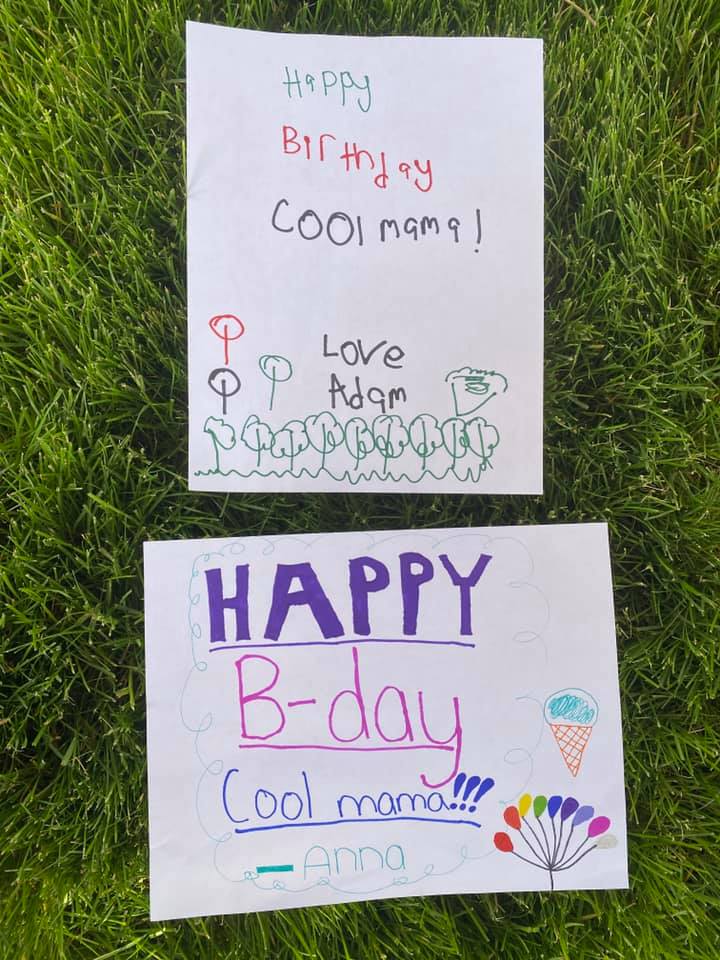 Happy
Birthday
Cool mama!
Love
Adam
HAPPY
B-day
Cool mama!!!
- Anna